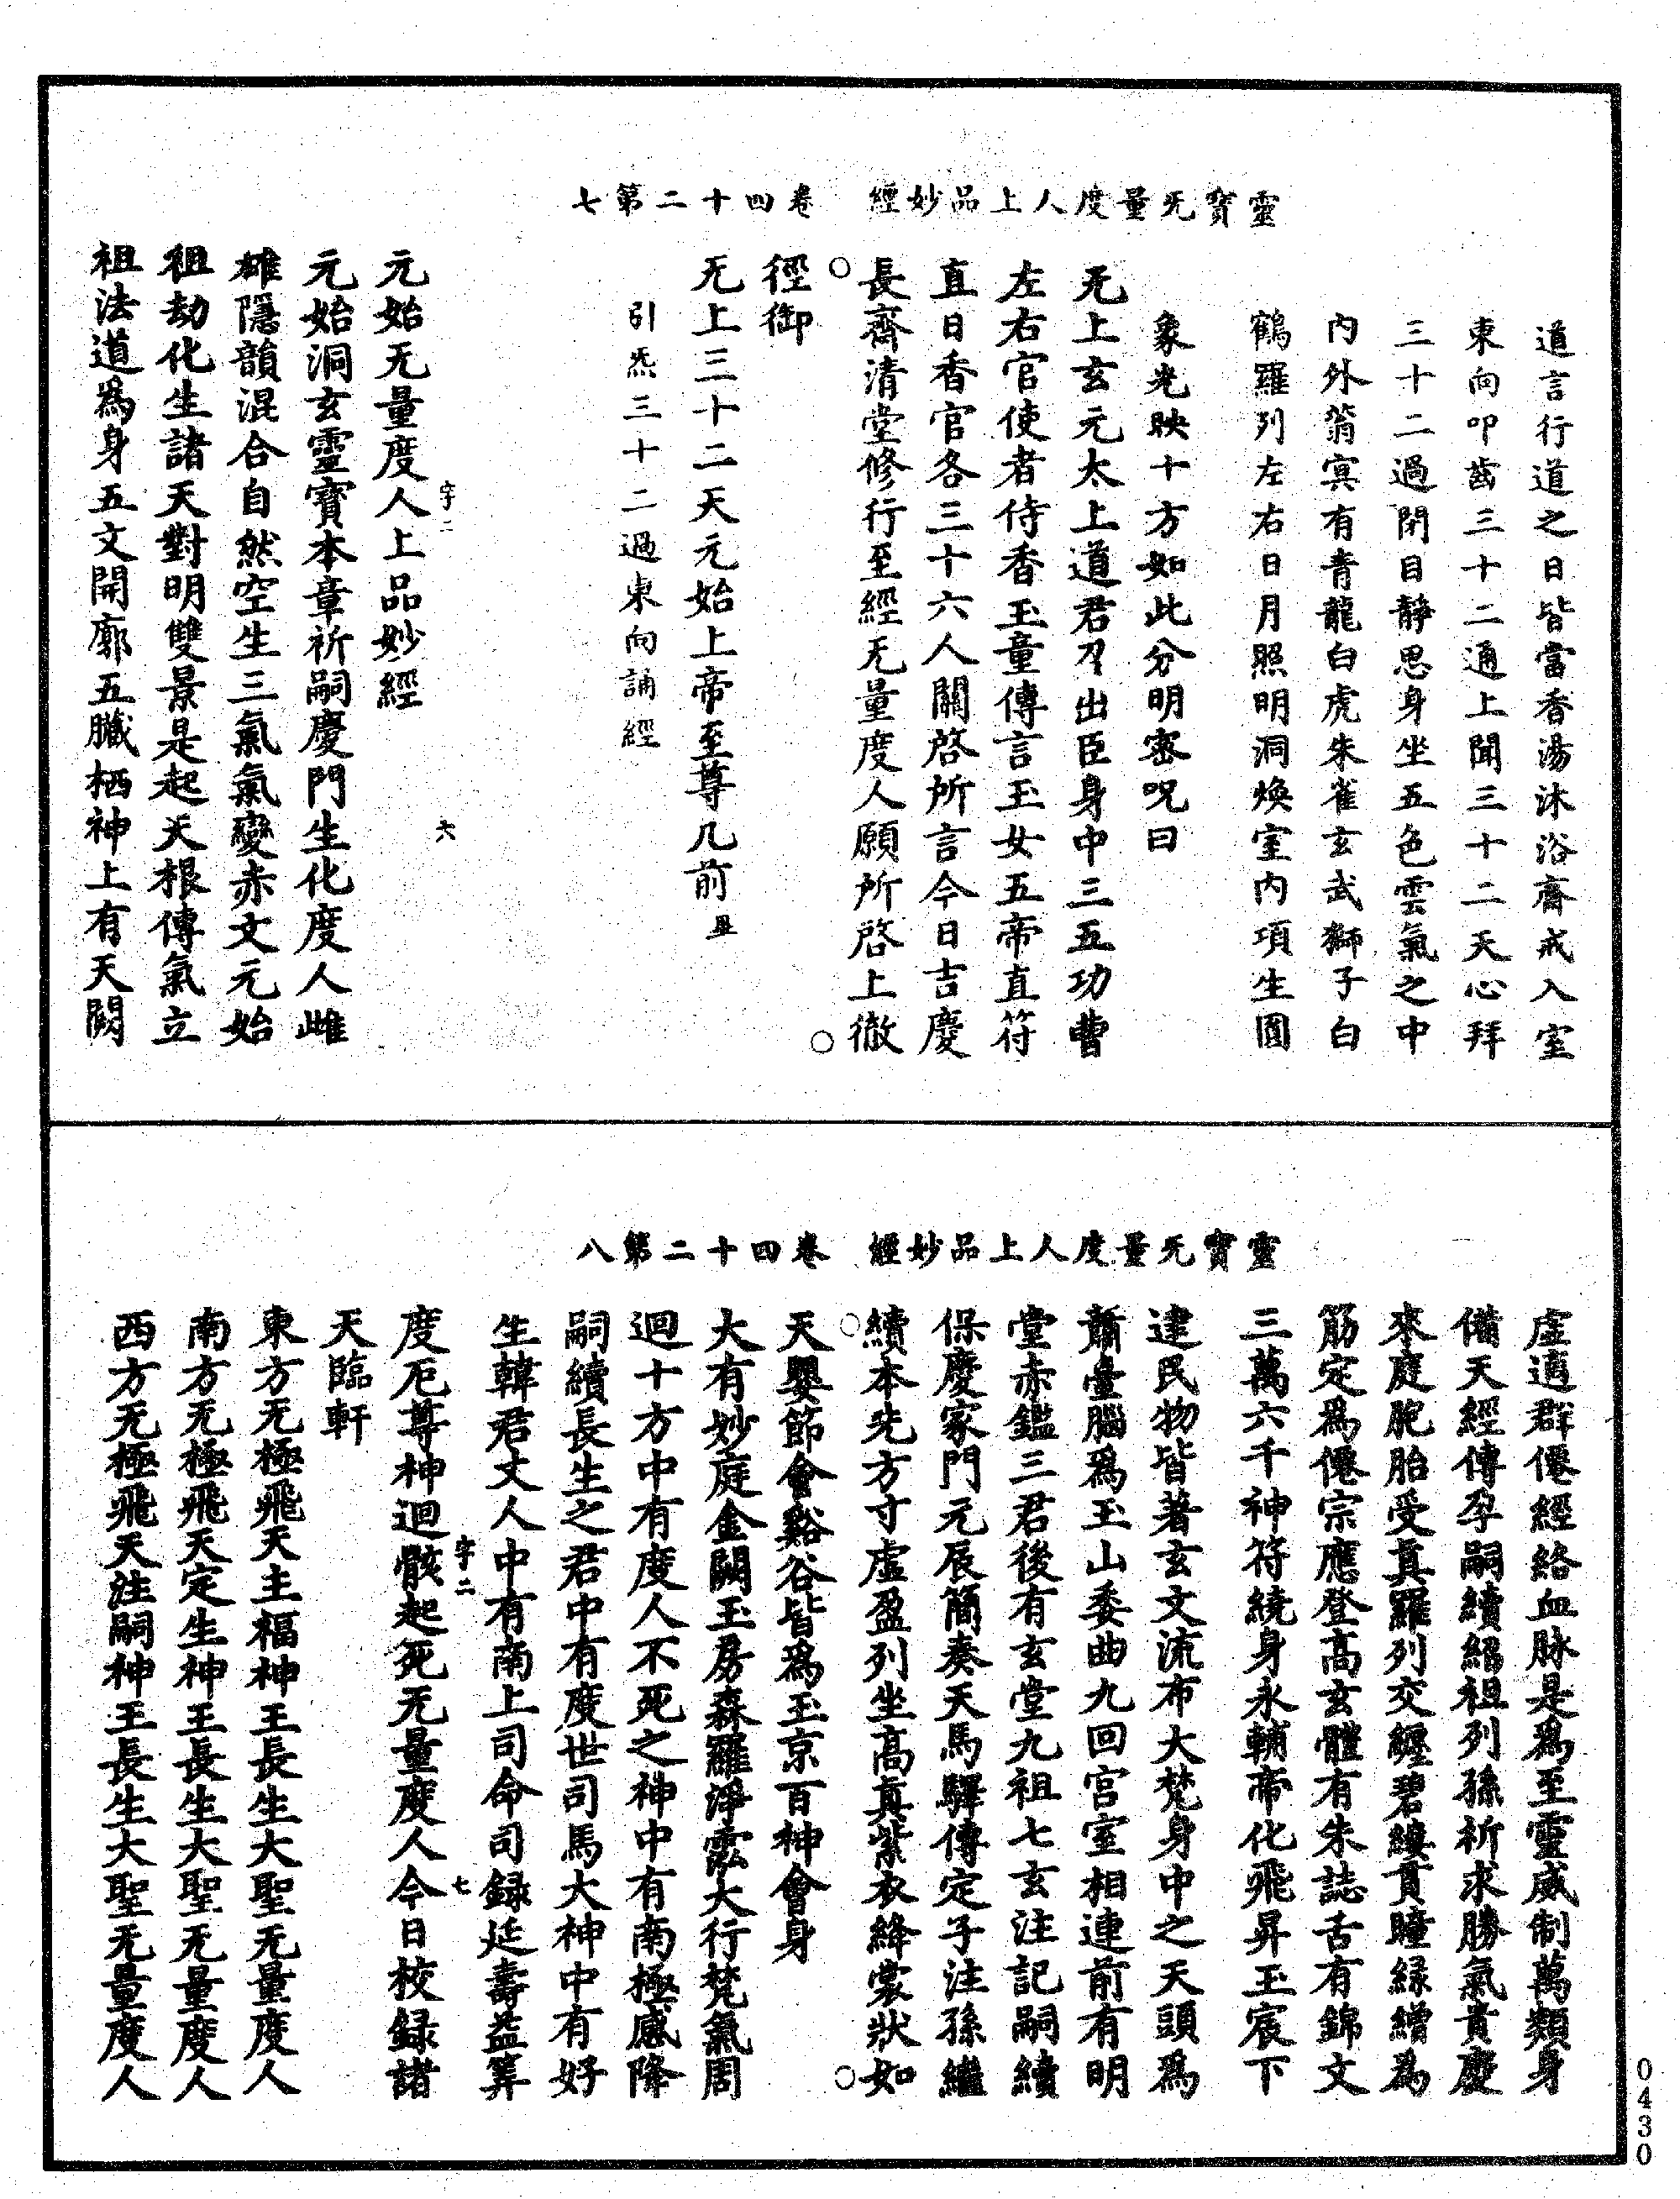 靈寶无量度人上品妙經　卷四十二第七
道言行道之日皆當香湯沐浴齋戒入室
東向叩齒三十二通上聞三十二天心拜
三十二過閉目靜思身坐五色雲氣之中
內外蓊冥有青龍白虎朱雀玄武獅子白
鶴羅列左右日月照明洞煥室內項生圓
象光映十方如此分明密呪曰
无上玄元太上道君召出臣身中三五功曹
左右官使者侍香玉童傳言玉女五帝直符
直日香官各三十六人關啓所言今日吉慶
長齋清堂修行至經无量度人願所啓上徹
徑御
无上三十二天元始上帝至尊几前畢
引炁三十二過東向誦經
字二　六
元始无量度人上品妙經
元始洞玄靈寶本章祈嗣慶門生化度人雌
雄隱韻混合自然空生三氣氣變赤文元始
祖劫化生諸天對明雙景是起天根傳氣立
祖法道爲身五文開廓五臟栖神上有天闕
靈寶无量度人上品妙經　卷四十二第八
虛適群僊經絡血脉是爲至靈威制萬類身
備天經傳孕嗣續紹祖列孫祈求勝氣貴慶
來庭胞胎受真羅列交纏碧縷貫瞳緑繒爲
筋定爲僊宗應登高玄體有朱誌舌有錦文
三萬六千神符繞身永輔帝化飛昇玉宸下
建民物皆著玄文流布大梵身中之天頭爲
蕭臺腦爲玉山委曲九回宮室相連前有明
堂赤鑑三君後有玄堂九祖七玄注記嗣續
保慶家門元辰簡奏天馬驛傳定子注孫繼
續本先方寸虛盈列坐高真紫衣絳裳狀如
天嬰節會谿谷皆爲玉京百神會身
大有妙庭金闕玉房森羅淨泓大行梵氣周
迴十方中有度人不死之神中有南極感降
嗣續長生之君中有度世司馬大神中有好
生韓君丈人中有南上司命司録延壽益筭
度厄尊神迴骸起死无量度人今日校録諸
字二　七
天臨軒
東方无極飛天主福神王長生大聖无量度人
南方无極飛天定生神王長生大聖无量度人
西方无極飛天注嗣神王長生大聖无量度人
0430